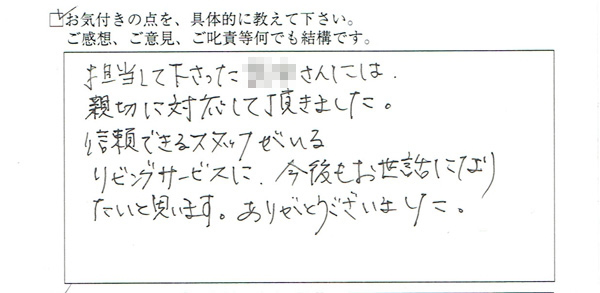 お気付きの点を、具体的に教えて下さい。
ご感想、ご意見、ご叱責等何でも結構です。
担当して下さった さんには、
親切に対応して頂きました。
信頼できるスタッフがいる
リビングサービスに、今後もお世話になり
たいと思います。ありがとうございました。